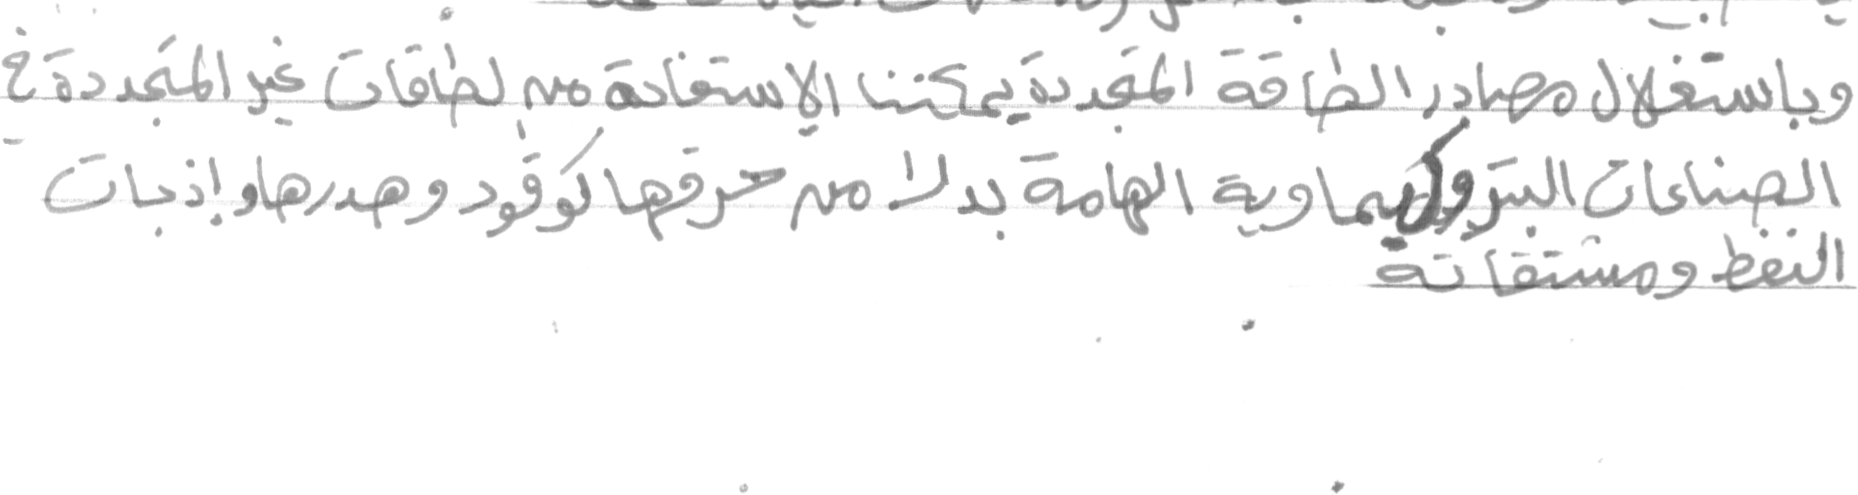 وباستغلال مصادر الطاقة المتجددة يمكننا الاستفادة من لطاقات غير المتجددة في
الصناعات البتروكيماوية الهامة بدلا من حرقها كوقود وهدرها وإذبات
النفط ومشتقاته